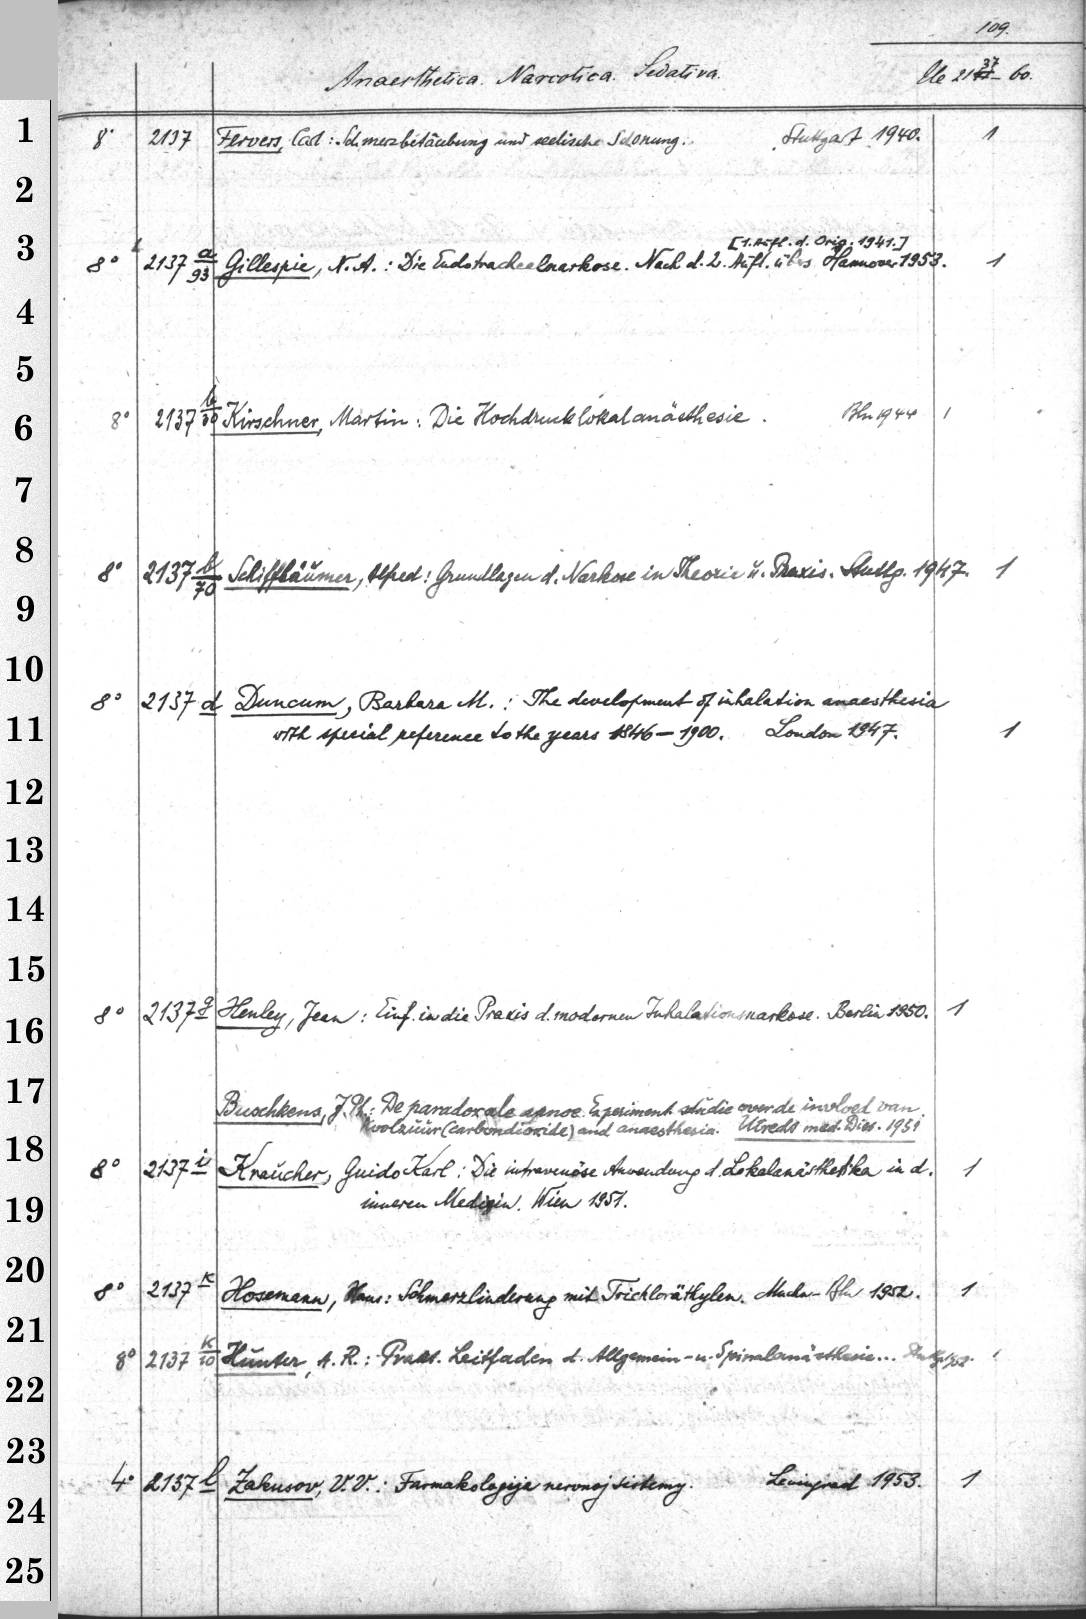 109.
Anaesthetica. Narcotica. Sedativa. Ue 2137 – 60.
1
8° 2137 Fervers, Carl: Schmerzbetäubung und seelische Schonung. Stuttgart 1940. 1
2
[1. Aufl. d. Orig. 1941.]
3
8° 2137 a/93 Gillespie, N. A.: Die Endotrachealnarkose. Nach d. 2. Aufl. übers. Hannover 1953. 1
4
5
6
8° 2137 b/30 Kirschner, Martin: Die Hochdrucklokalanästhesie. Bln 1944 1
7
8
8° 2137 b/70 Schiffbäumer, Alfred: Grundlagen d. Narkose in Theorie u. Praxis. Stuttg. 1947. 1
9
10
8° 2137 d Duncum, Barbara M.: The development of inhalation anaesthesia
11
with special reference to the years 1846–1900. London 1947. 1
12
13
14
15
16
8° 2137 g Henley, Jean: Einf. in die Praxis d. modernen Inhalationsnarkose. Berlin 1950. 1
17
Buschkens, J. Ph.: De paradoxale apnoe. Experiment. studie over de invloed van
koolzuur (carbondioxide) and anaesthesia. Utreds med. Diss. 1951
18
8° 2137 i Kraucher, Guido Karl: Die intravenöse Anwendung d. Lokalanästhetika in d. 1
19
inneren Medizin. Wien 1951.
20
8° 2137 k Hosemann, Hans: Schmerzlinderung mit Trichloräthylen. Mchn-Bln 1952. 1
21
8° 2137 k/10 Hunter, A. R.: Prakt. Leitfaden d. Allgemein- u. Spinalanästhesie...
22
23
4° 2137 l Zakusov, V. V.: Farmakologija nervnoj sistemy. Leningrad 1953. 1
24
25